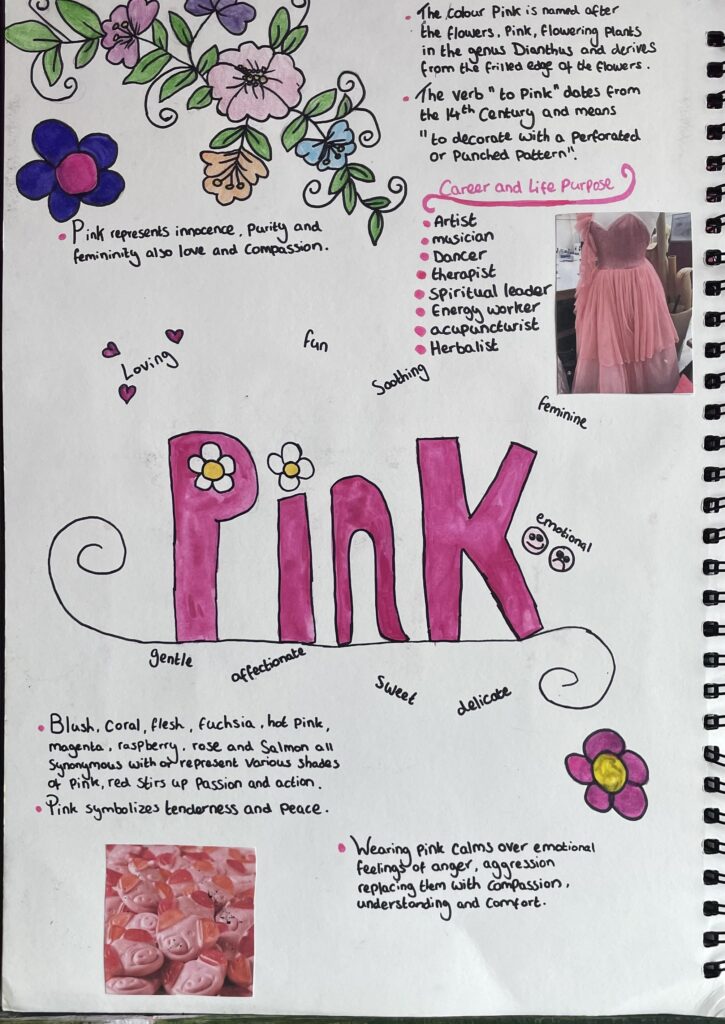 The colour Pink is named after
the flowers, Pink, flowering Plants
in the genus Dianthus and derives
from the frilled edge of the flowers.
The verb "to Pink" dates from
the 14th Century and means
"to decorate with a Perforated
or Punched Pattern".
Career and Life Purpose
Artist
musician
Dancer
therapist
Spiritual leader
Energy worker
acupuncturist
Herbalist
Pink represents innocence, Purity and
femininity also love and Compassion.
Loving
fun
Soothing
feminine
Pink
emotional
gentle
affectionate
Sweet
delicate
Blush, Coral, flesh, fuchsia, hot Pink,
magenta, raspberry, rose and Salmon all
Synonymous with or represent various shades
of Pink, red stirs up Passion and action.
Pink symbolizes tenderness and peace.
Wearing Pink Calms over emotional
feelings of anger, aggression
replacing them with Compassion,
understanding and Comfort.